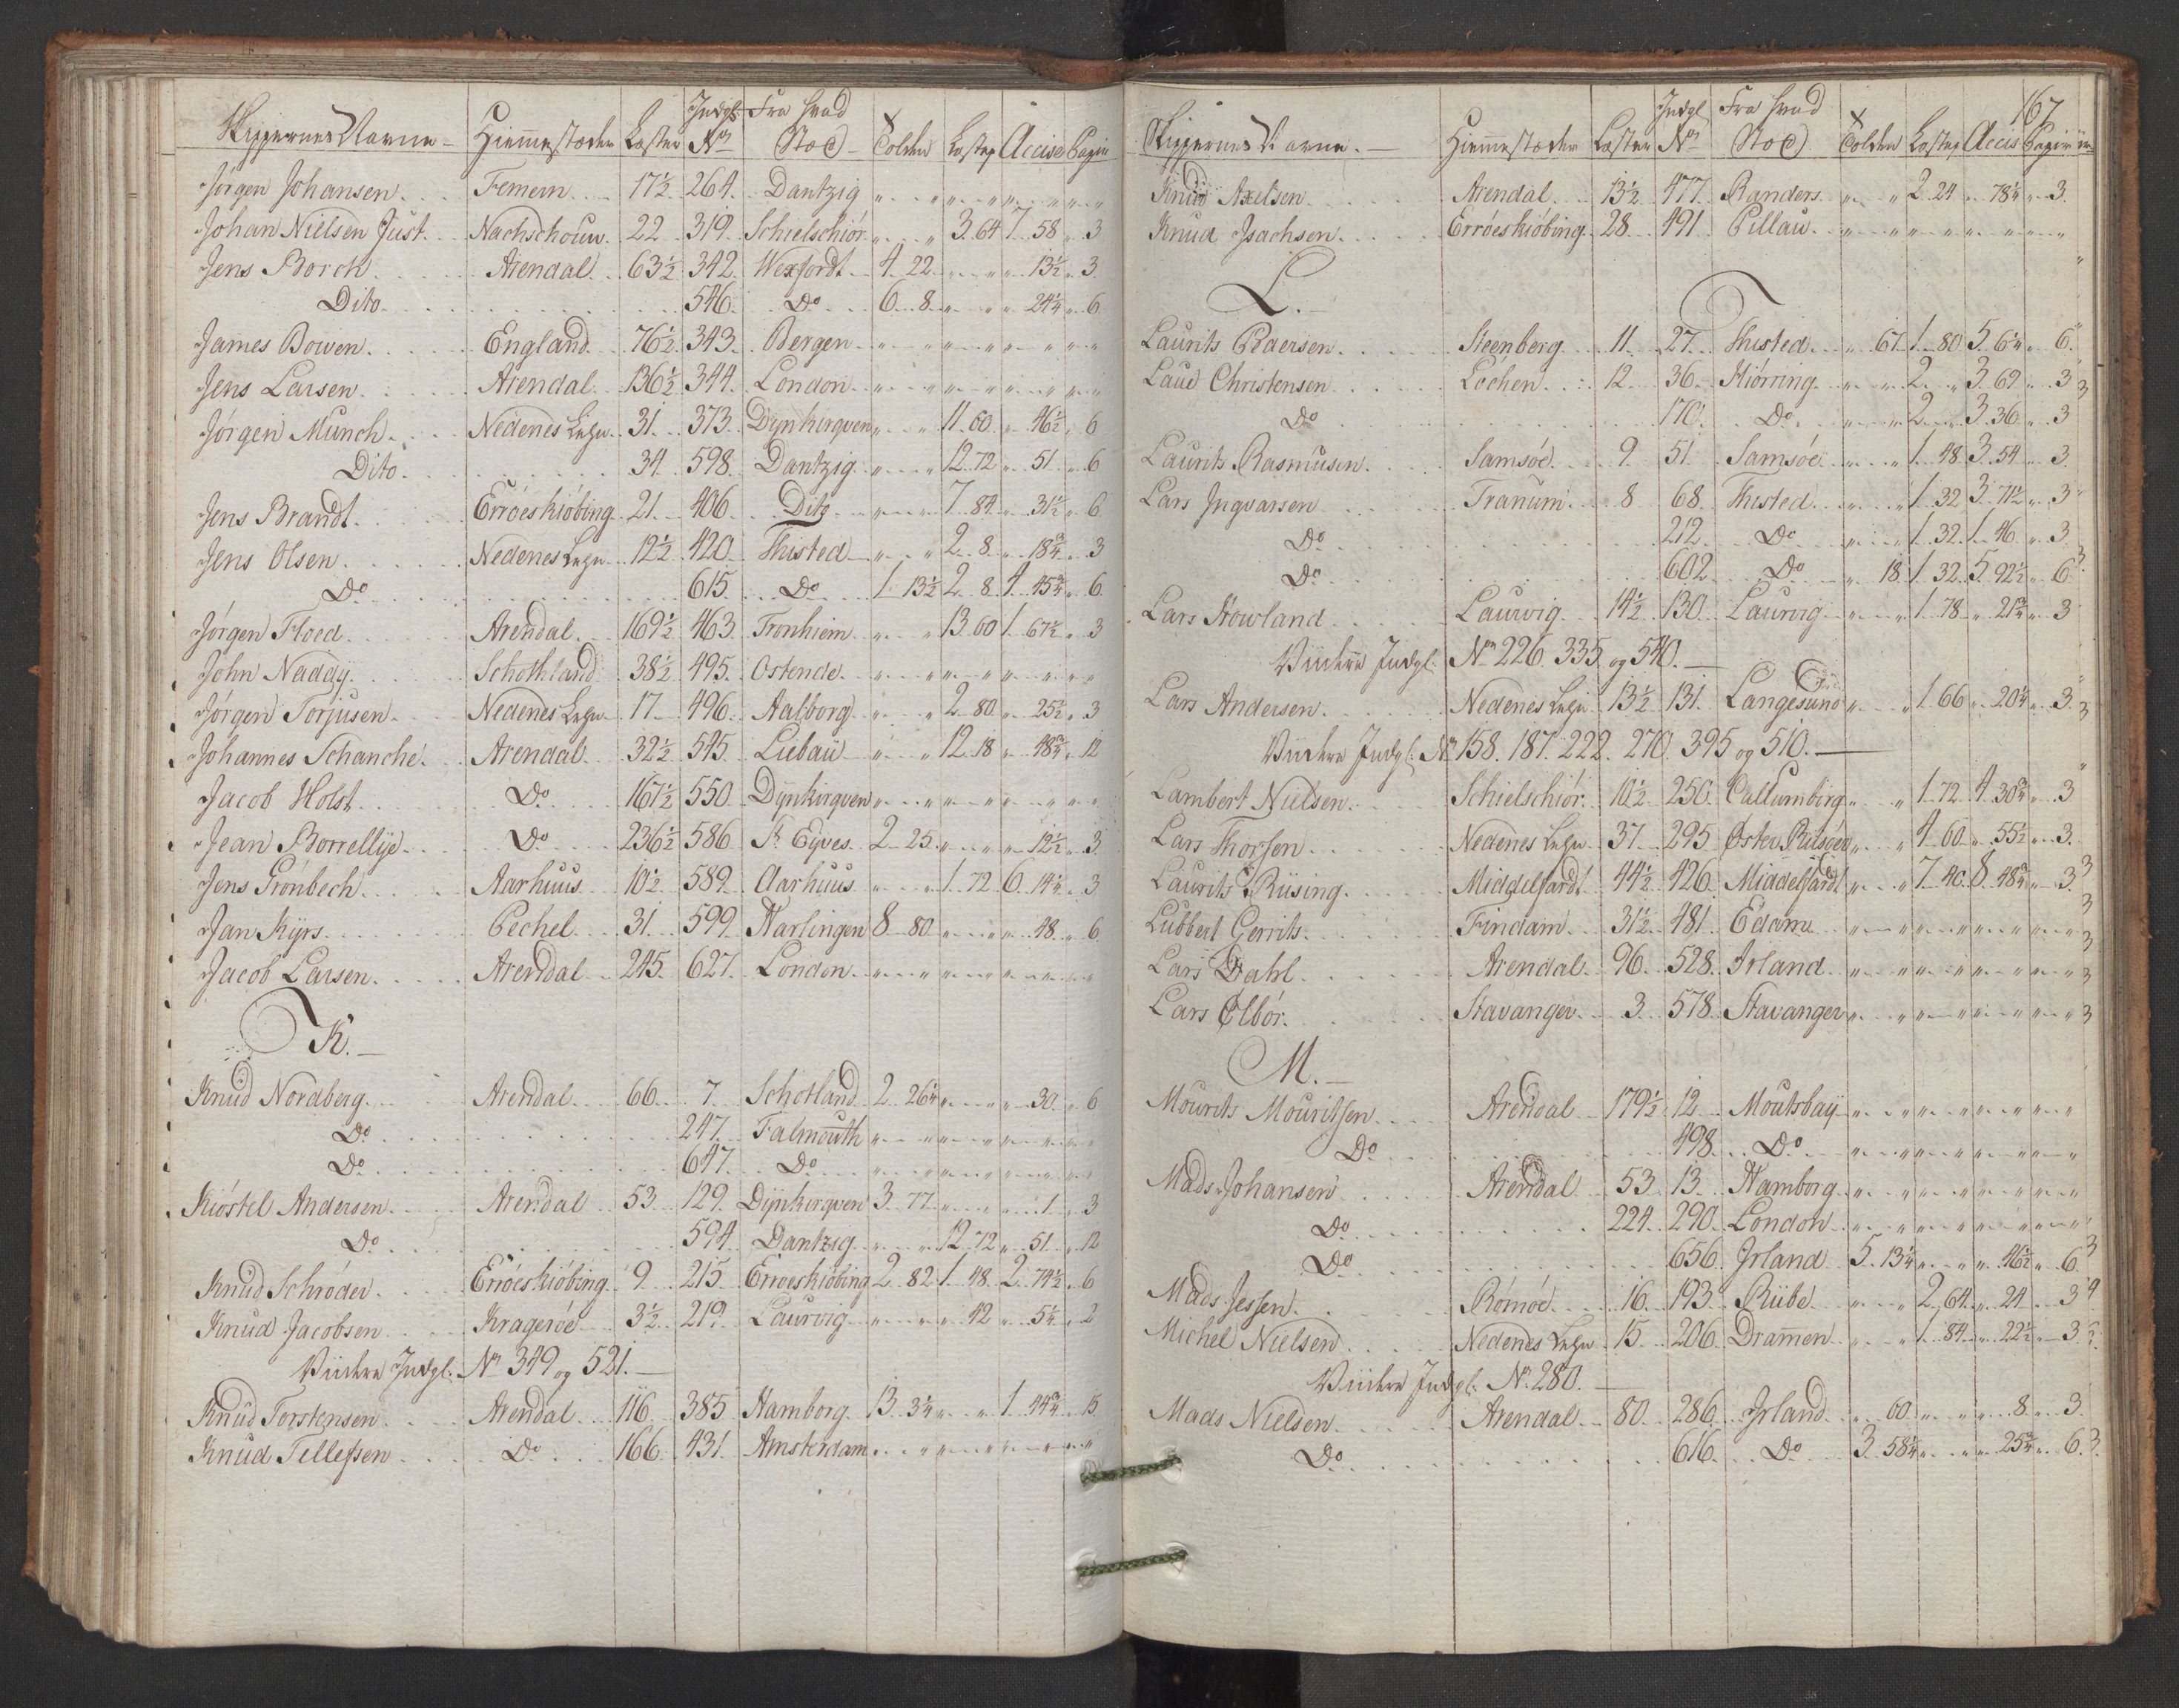 Skippernes Navne Hiemmestæder Læster Indgl: No Fra hvad Stæd Tolden Lastep Accise Papir
Jørgen Johansen Femern 17½ 264 Dantzig
Johan Nielsen Just Nachschouw 22 319 Schielschiør 3 64 7 58 3
Jens Borch Arendal 63½ 342 Wexfordt 4 22 13½ 3
Dito 546 Do 6 8 24¼ 6
James Bowen England 76½ 343 Bergen
Jens Larsen Arendal 136½ 344 London
Jørgen Münch Nedenes Lehn 31 373 Dynkirqven 11 60 46½ 6
Dito 34 598 Dantzig 12 72 51 6
Jens Brandt Erröeskiöbing 21 406 Dito 7 84 31½ 6
Jens Olsen Nedenes Lehn 12½ 420 Thisted 2 8 18¾ 3
Do 615 Do 1 13½ 2 8 4 45¾ 6
Jørgen Floed Arendal 169½ 463 Tronhiem 13 60 1 67½ 3
John Naddy Schottland 38½ 495 Ostende
Jørgen Torjusen Nedenes Lehn 17 496 Aalborg 2 80 25½ 3
Johannes Schanche Arendal 32½ 545 Liebau 12 18 48¾ 12
Jacob Holst Do 167½ 550 Dynkirqven
Jean Borrellye Do 236½ 586 St Eyves 2 25 12½ 3
Jens Grønbech Aarhuus 10½ 589 Aarhuus 1 72 6 14¼ 3
Jan Kyrs Pechel 31 599 Harlingen 8 80 48 6
Jacob Larsen Arendal 245 627 London
K.
Knud Nordberg Arendal 66 7 Schotland 2 26¼ 30 6
Do 247 Falmouth
Do 647 Do
Kiøstel Andersen Arendal 53 129 Dynkirqven 3 77 1 3
Do 594 Dantzig 12 72 51 12
Knud Schrøder Erröeskiöbing 9 215 Erroeskiöbing 2 82 1 48 2 74½ 6
Knud Jacobsen Kragerøe 3½ 219 Laurvig 42 5¼ 2
Viidere Indgl: No 349 og 521.
Knud Torstensen Arendal 116 385 Hamborg 13 3¼ 1 44¾ 15
Knud Tellefsen Do 166 431 Amsterdam
167
Skippernes Navne Hiemmestæder Læster Indgl No Fra hvad Stæd Tolden Lastep Accis Papir
Knud Axelsen Arendal 13½ 477 Randers 2 24 78¼ 3
Knud Isachsen Erröeskiöbing 28 491 Pillau
L.
Laurits Pedersen Steenberg 11 27 Thisted 67 1 80 5 6¼ 6
Laue Christensen Løchen 12 36 Hiørring 2 3 69 3
Do 170 Do 2 3 36 3
Laurits Rasmusen Samsøe 9 51 Samsøe 1 48 3 54 3
Lars Ingvarsen Tranum 8 68 Thisted 1 32 3 71½ 3
Do 212 Do 1 32 1 46 3
Do 602 Do 18 1 32 5 92½ 6
Lars Howland Laurvig 14½ 130 Laurvig 1 78 21¾ 3
Viidere Indgl: No 226. 335 og 540.
Lars Andersen Nedenes Lehn 13½ 131 Langesund 1 66 20¼ 3
Viidere Indgl: No 158. 187. 222. 270. 395 og 510.
Lambert Nielsen Schielschiør 10½ 250 Callumborg 1 72 4 30¾ 3
Lars Thorsen Nedenes Lehn 37 295 Øster Riisøer 4 60 55½ 3
Laurits Riising Middelfardt 44½ 426 Middelfardt 7 40 8 48¾ 3
Lubbert Gerrits Findam 31½ 481 Edam
Lars Dahl Arendal 96 528 Irland
Lars Ølbør Stavanger 3 578 Stavanger
M.
Mourits Mouritsen Arendal 179½ 12 Moutsbay
Do 498 Do
Mads Johansen Arendal 53 13 Hamborg
Do 224 290 London
Do 656 Irland 5 13¼ 46½ 6
Mads Jessen Rømøe 16 193 Riibe 2 64 24 3
Michel Nielsen Nedenes Lehn 15 206 Dramen 1 84 22½ 3
Viidere Indgl: No 280.
Mads Nielsen Arendal 80 286 Irland 60 8 3
Do 616 Do 3 58¼ 25¾ 6